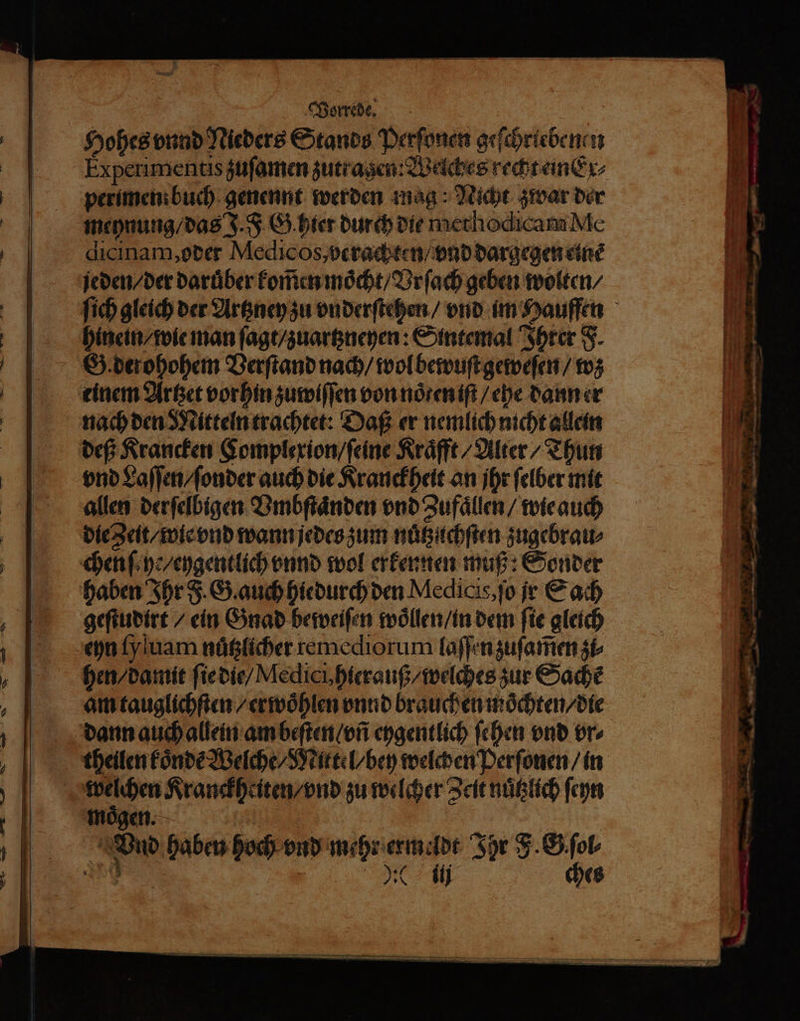 Vorrede.
Hohes vnnd Nieders Stands Perſonen geſchriebenen
Experimentis zuſamen zutragen: Welches recht ein Ex⸗
perimentbuch genennt werden mag: Nicht zwar der
meynung/das J. F G. hier durch die methodicam Me
dicinam, oder Medicos, verachten/vnd dargegen einẽ
jeden/der daruͤber kom̃en moͤcht/Vrſach geben wolten/
ſich gleich der Artzney zu vnderſtehen/ vnd im Hauffen
hinein/wie man ſagt/zuartzneyen: Sintemal Ihrer F.
G. der ohohem Verſtand nach/ wol bewuſt geweſen / wz
einem Artzet vorhin zuwiſſen von noͤten iſt / ehe dann er
nach den Mitteln trachtet: Daß er nemlich nicht allein
deß Krancken Complexion/ſeine Kraͤfft / Alter / Thun
vnd Laſſen/ſonder auch die Kranckheit an jhr ſelber mit
allen derſelbigen Vmbſtaͤnden vnd Zufaͤllen / wie auch
die Zeit/wie vnd wann jedes zum nuͤtzlichſten zugebrau⸗
chen ſeye/eygentlich vnnd wol erkennen muß: Sonder
haben Ihr F. G. auch hiedurch den Medicis, ſo jr Sach
geſtudirt / ein Gnad beweiſen woͤllen/in dem ſie gleich
eyn ſyluam nuͤtzlicher remediorum laſſen zuſam̃en zi⸗
hen/damit ſie die/Medici, hierauß/welches zur Sachẽ
am tauglichſten / erwoͤhlen vnnd brauchen moͤchten/die
dann auch allein am beſten/vñ eygentlich ſehen vnd vr⸗
theilen koͤndẽ Welche/Mittel/bey welchen Perſonen / in
welchen Kranckheiten/vnd zu welcher Zeit nuͤtzlich ſeyn
moͤgen.
Vnd haben hoch vnd mehr ermeldt Ihr F. G. ſol⸗
):( iij ches